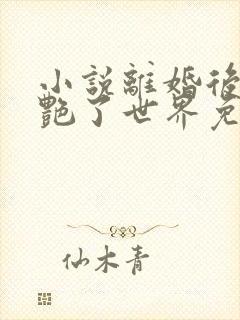 小說離婚後
艷了世界免
仙木青